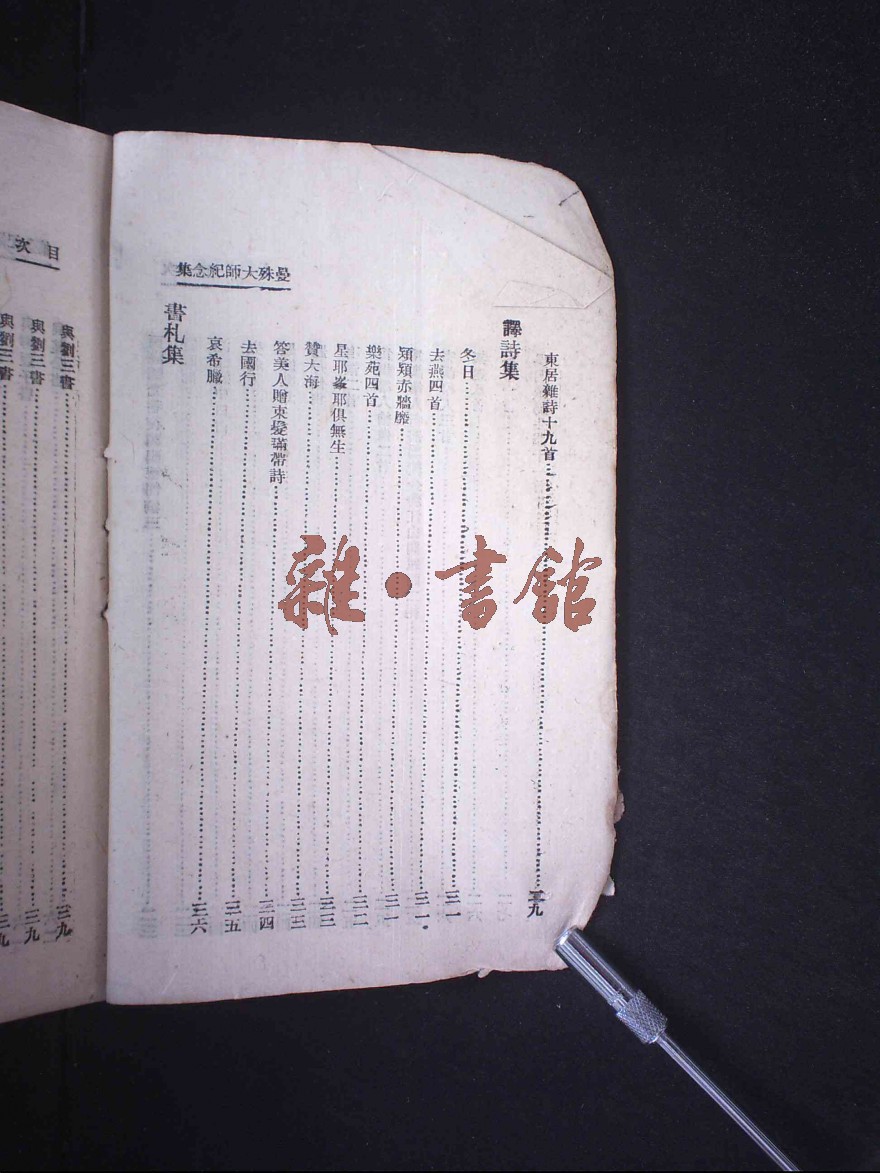 曼殊大師紀念集
東居雜詩十九首……二九
譯詩集
冬日……三一
去燕四首……三一
熲熲赤牆靡……三一
樂苑四首……三二
星耶峯耶俱無生……三三
贊大海……三三
答美人贈束髮𤩽帶詩……三四
去國行……三五
哀希臘……三六
書札集
目次
與劉三書……三九
與劉三書……三九
與劉三書……三九
雜·書館